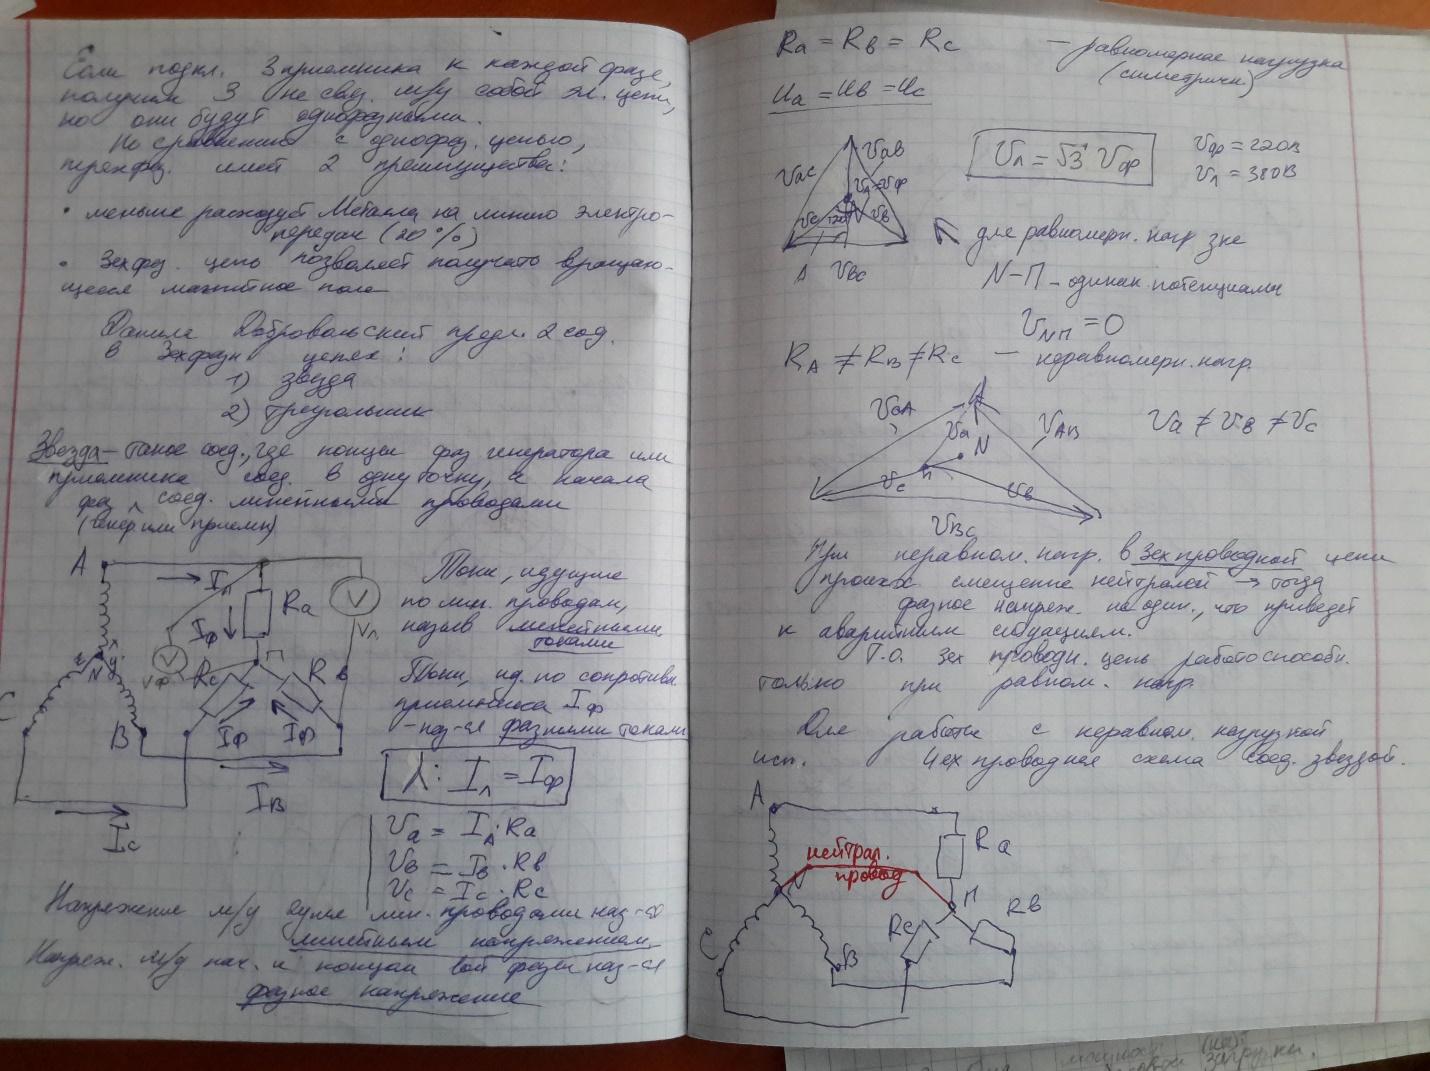 Если подкл. 3 приемника к каждой фазе,
получим 3 не связ. м/у собой эл. цепи,
но они будут однофазными.
По сравнению с однофаз. цепью,
трехфаз. имеет 2 преимущества:
• меньше расходует металла на линию электро-
передач (20%)
• 3ехфаз. цепь позволяет получать вращаю-
щееся магнитное поле
Данила Добровольский предл. 2 соед.
в 3ехфазн цепях:
1) звезда
2) треугольник
Звезда – такое соед., где концы фаз генератора или
приемника соед. в одну точку, а начала
фаз соед. линейными проводами
(генер или приемн)
A
Iл
Ra
V
Vл
Iф
V
Vф
N
x
y
z
Rc
П
Rв
C
B
Iф
Iф
Iв
Ic
Токи, идущие
по лин. проводам,
назыв линейными
токами
Токи, ид. по сопротивл.
приемника Iф
– наз-ся фазными токами
⅄: Iл = Iф
Va = IA · Ra
Vв = Iв · Rв
Vc = Ic · Rc
Напряжение м/у двумя лин. проводами наз-ся
линейным напряжением
Напряж. м/д нач. и концом 1ой фазы наз-ся
фазное напряжение
Ra = Rв = Rc – равномерная нагрузка
(симмедричн)
Ua = Uв = Uc
Vac
Vав
Va=Vф
Vc
120
N
Vв
A
Vвс
Vл = √3 Vф
Vф = 220В
Vл = 380В
для равномерн. нагр зке
N–П – одинак. потенциалы
VNП = 0
RA ≠ Rв ≠ Rc – неравномерн. нагр.
VcA
A
VAB
Va
N
П
Vc
Vв
Vвс
Va ≠ Vв ≠ Vc
При неравном. нагр. в 3ех проводной цепи
происх. смещение нейтралей → тогда
фазное напряж. не один., что приведет
к аварийным ситуациям.
Т.о. 3ех проводн. цепь работоспособн.
только при равном. нагр.
Для работы с неравном. нагрузкой
исп. 4ех проводная схема соед. звездой.
A
Ra
нейтрал.
провод
N
П
Rв
Rc
C
B